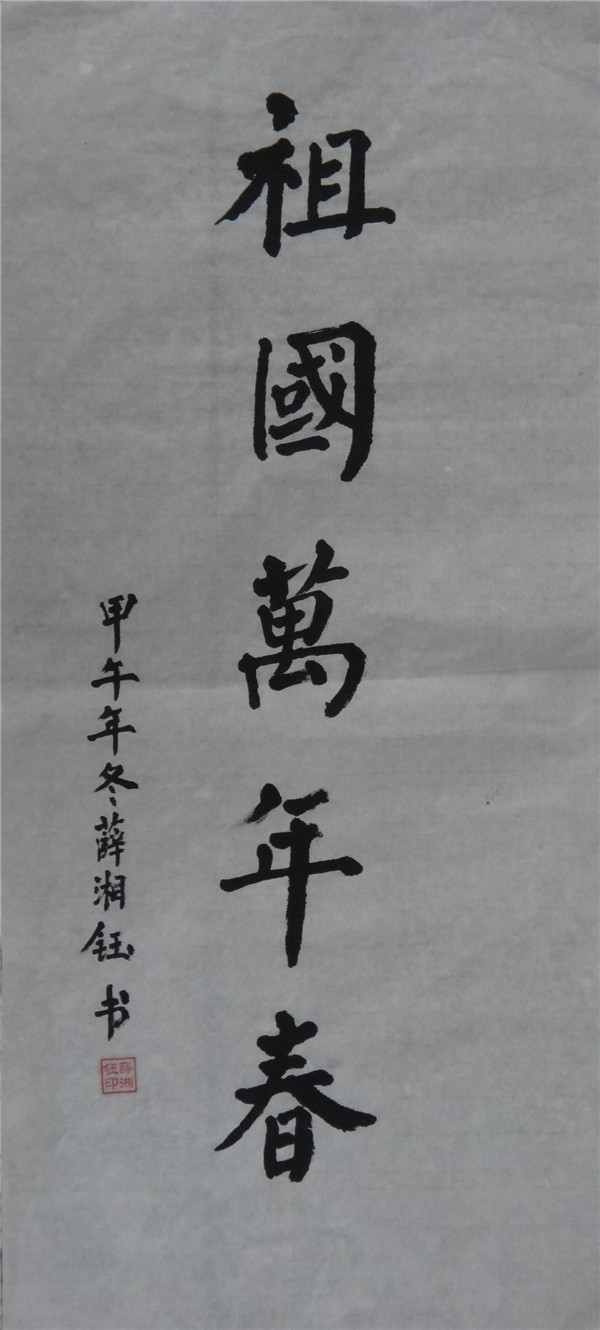 祖國萬年春
甲午年冬薛湘鈺书
薛湘
鈺印